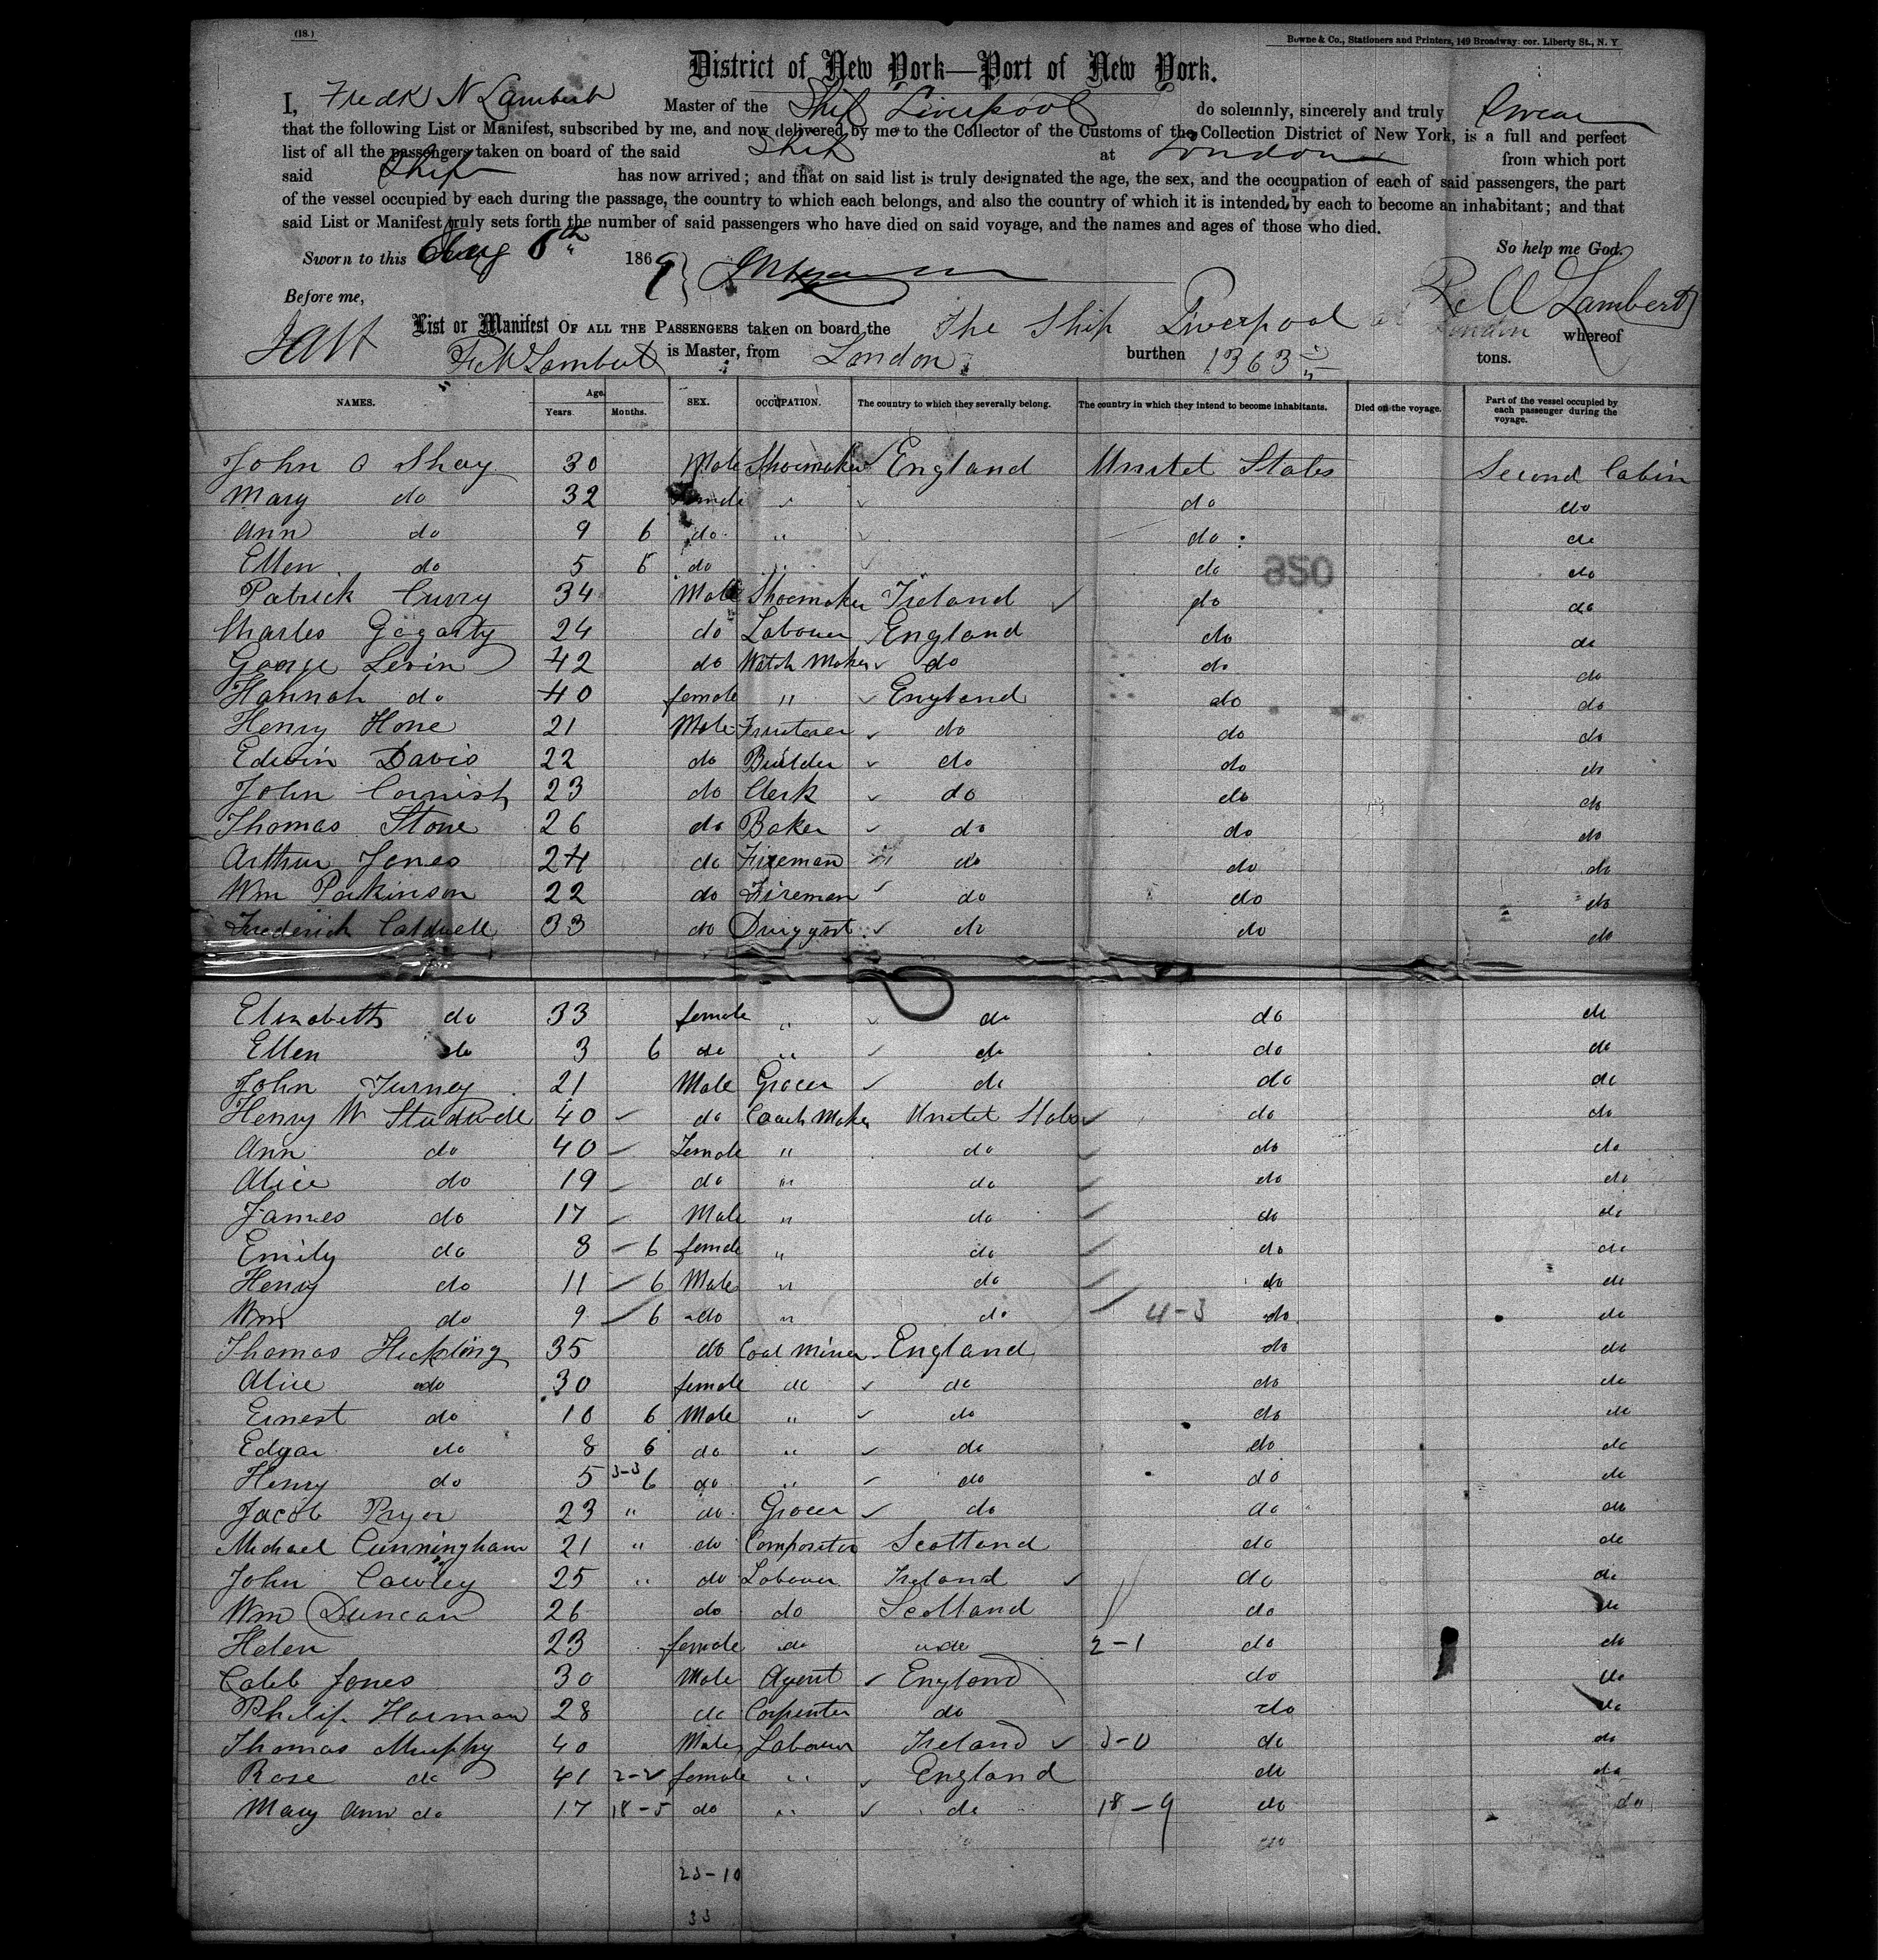 (18.)
Bowne & Co., Stationers and Printers, 149 Broadway: cor. Liberty St., N. Y
District of New York—Port of New York.
I, Fredk N Lambert Master of the Ship Liverpool do solemnly, sincerely and truly Swear
that the following List or Manifest, subscribed by me, and now delivered by me to the Collector of the Customs of the Collection District of New York, is a full and perfect
list of all the passengers taken on board of the said Ship at London from which port
said Ship has now arrived; and that on said list is truly designated the age, the sex, and the occupation of each of said passengers, the part
of the vessel occupied by each during the passage, the country to which each belongs, and also the country of which it is intended by each to become an inhabitant; and that
said List or Manifest truly sets forth the number of said passengers who have died on said voyage, and the names and ages of those who died.
So help me God.
Sworn to this Aug 6th 1869
Lambert
Before me,
List or Manifest OF ALL THE PASSENGERS taken on board the The Ship Liverpool London whereof
Lambert is Master, from London burthen 1363 tons.
NAMES. Age. Years. Months. SEX. OCCUPATION. The country to which they severally belong. The country in which they intend to become inhabitants. Died on the voyage. Part of the vessel occupied by each passenger during the voyage.
John O Shay 30 Male Shoemaker England Unitet States Second Cabin
Mary do 32 female " do do
Ann do 9 6 do " do do
Ellen do 5 6 do " do do
850
Patrick Curry 34 Male Shoemaker Ireland do do
Charles Gogarty 24 do Labouer England do do
George Levin 42 do Watch Maker do do do
Hannah do 40 female " England do do
Henry Hone 21 Male Fruiterer do do do
Edwin Davis 22 do Builder do do do
John Cornish 23 do Clerk do do do
Thomas Stone 26 do Baker do do do
Arthur Jones 24 do Fireman do do do
Wm Parkinson 22 do Fireman do do do
Frederick Caldwell 33 do Druggist do do do
Elizabeth do 33 female " do do do
Ellen do 3 6 do " do do do
John Turney 21 Male Grocer do do do
Henry W Studwell 40 do Coach Maker Unitet States do do
Ann do 40 Female " do do do
Alice do 19 do " do do do
James do 17 Male " do do do
Emily do 8 6 female " do do do
Henry do 11 6 Male " do do do
Wm do 9 6 do " do 4-3 do do
Thomas Hickling 35 do Coal Miner England do do
Alice do 30 female do do do do
Ernest do 10 6 Male " do do do
Edgar do 8 6 do " do do do
Henry do 5 3-3 6 do " do do do
Jacob Pryor 23 " do Grocer do do do
Michael Cunningham 21 " do Compositor Scotland do do
John Cawley 25 " do Labouer Ireland do do
Wm Duncan 26 do do Scotland do do
Helen 23 female do do 2-1 do do
Caleb Jones 30 Male Agent England do do
Philip Harman 28 do Carpenter do do do
Thomas Murphy 40 Male Labouer Ireland 3-0 do do
Rose do 41 2-2 female " England do do
Mary Ann do 17 18-5 do " do 18-9 do do
do
23-10
33